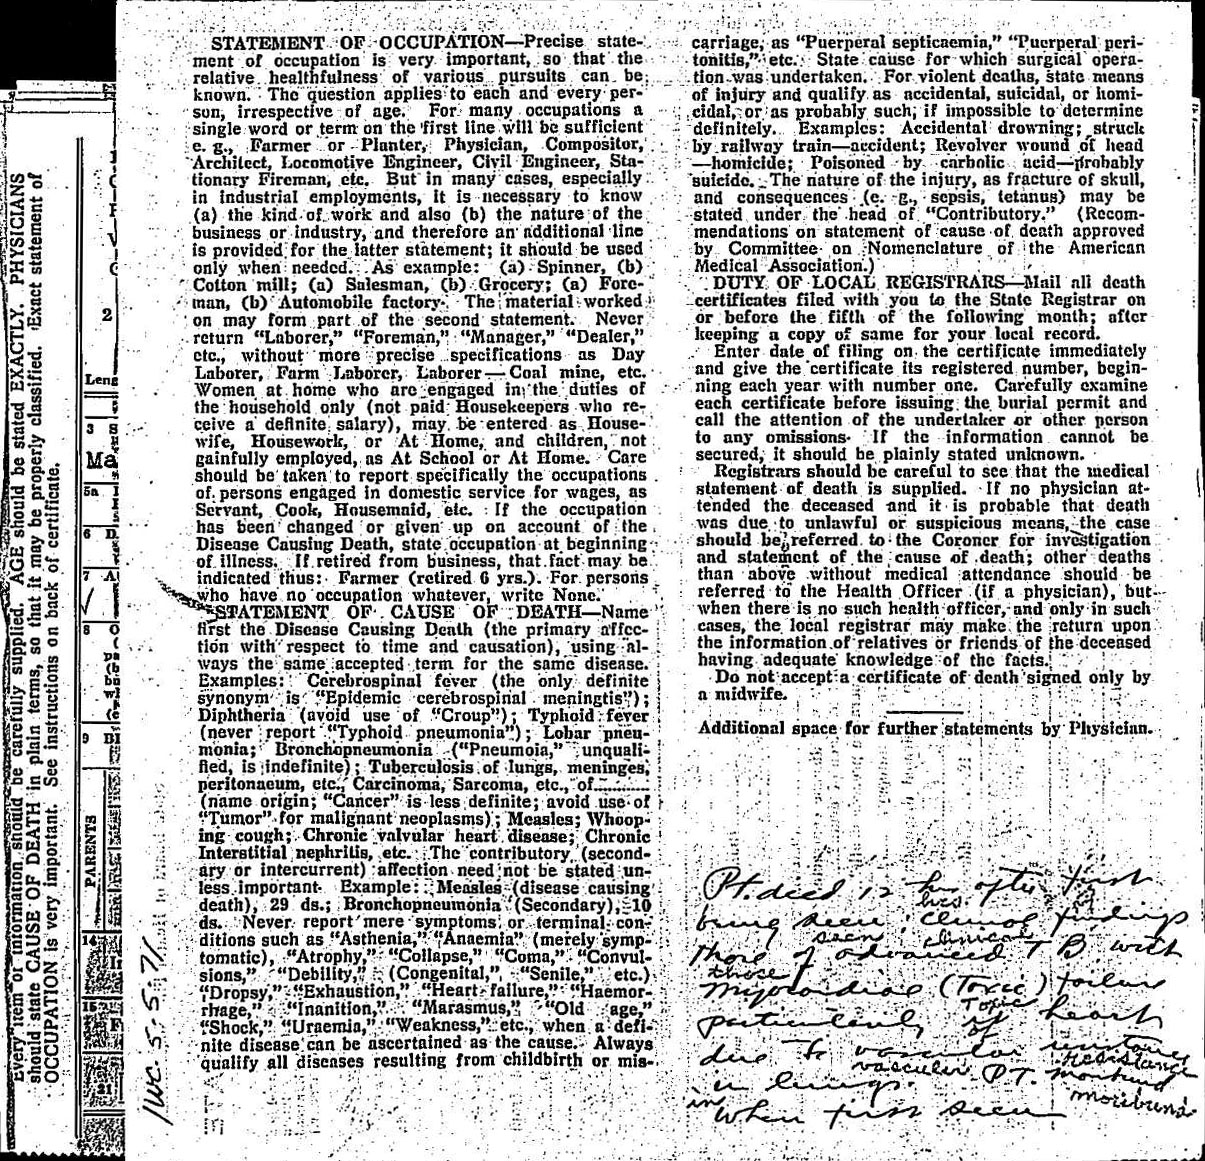 Every item of information should be carefully supplied. AGE should be stated EXACTLY. PHYSICIANS
should state CAUSE OF DEATH in plain terms, so that it may be properly classified. Exact statement of
OCCUPATION is very important. See instructions on back of certificate.
2
Leng
3 S
Ma
5a
6 D
7 A
8 O
9 BI
PARENTS
14
15
STATEMENT OF OCCUPATION—Precise state-
ment of occupation is very important, so that the
relative healthfulness of various pursuits can be
known. The question applies to each and every per-
son, irrespective of age. For many occupations a
single word or term on the first line will be sufficient
e. g., Farmer or Planter, Physician, Compositor,
Architect, Locomotive Engineer, Civil Engineer, Sta-
tionary Fireman, etc. But in many cases, especially
in industrial employments, it is necessary to know
(a) the kind of work and also (b) the nature of the
business or industry, and therefore an additional line
is provided for the latter statement; it should be used
only when needed. As example: (a) Spinner, (b)
Cotton mill; (a) Salesman, (b) Grocery; (a) Fore-
man, (b) Automobile factory. The material worked
on may form part of the second statement. Never
return "Laborer," "Foreman," "Manager," "Dealer,"
etc., without more precise specifications as Day
Laborer, Farm Laborer, Laborer—Coal mine, etc.
Women at home who are engaged in the duties of
the household only (not paid Housekeepers who re-
ceive a definite salary), may be entered as House-
wife, Housework, or At Home, and children, not
gainfully employed, as At School or At Home. Care
should be taken to report specifically the occupations
of persons engaged in domestic service for wages, as
Servant, Cook, Housemaid, etc. If the occupation
has been changed or given up on account of the
Disease Causing Death, state occupation at beginning
of illness. If retired from business, that fact may be
indicated thus: Farmer (retired 6 yrs.). For persons
who have no occupation whatever, write None.
STATEMENT OF CAUSE OF DEATH—Name
first the Disease Causing Death (the primary affec-
tion with respect to time and causation), using al-
ways the same accepted term for the same disease.
Examples: Cerebrospinal fever (the only definite
synonym is "Epidemic cerebrospinal meningtis");
Diphtheria (avoid use of "Croup"); Typhoid fever
(never report "Typhoid pneumonia"); Lobar pneu-
monia; Bronchopneumonia ("Pneumoia," unquali-
fied, is indefinite); Tuberculosis of lungs, meninges,
peritonaeum, etc., Carcinoma, Sarcoma, etc., of..........
(name origin; "Cancer" is less definite; avoid use of
"Tumor" for malignant neoplasms); Measles; Whoop-
ing cough; Chronic valvular heart disease; Chronic
Interstitial nephritis, etc. The contributory (second-
ary or intercurrent) affection need not be stated un-
less important. Example: Measles (disease causing
death), 29 ds.; Bronchopneumonia (Secondary), 10
ds. Never report mere symptoms or terminal con-
ditions such as "Asthenia," "Anaemia" (merely symp-
tomatic), "Atrophy," "Collapse," "Coma," "Convul-
sions," "Debility," (Congenital," "Senile," etc.)
"Dropsy," "Exhaustion," "Heart failure," "Haemor-
rhage," "Inanition," "Marasmus," "Old age,"
"Shock," "Uraemia," "Weakness," etc., when a defi-
nite disease can be ascertained as the cause. Always
qualify all diseases resulting from childbirth or mis-
carriage, as "Puerperal septicaemia," "Puerperal peri-
tonitis," etc. State cause for which surgical opera-
tion was undertaken. For violent deaths, state means
of injury and qualify as accidental, suicidal, or homi-
cidal, or as probably such; if impossible to determine
definitely. Examples: Accidental drowning; struck
by railway train—accident; Revolver wound of head
—homicide; Poisoned by carbolic acid—probably
suicide. The nature of the injury, as fracture of skull,
and consequences (e. g., sepsis, tetanus) may be
stated under the head of "Contributory." (Recom-
mendations on statement of cause of death approved
by Committee on Nomenclature of the American
Medical Association.)
DUTY OF LOCAL REGISTRARS—Mail all death
certificates filed with you to the State Registrar on
or before the fifth of the following month; after
keeping a copy of same for your local record.
Enter date of filing on the certificate immediately
and give the certificate its registered number, begin-
ning each year with number one. Carefully examine
each certificate before issuing the burial permit and
call the attention of the undertaker or other person
to any omissions. If the information cannot be
secured, it should be plainly stated unknown.
Registrars should be careful to see that the medical
statement of death is supplied. If no physician at-
tended the deceased and it is probable that death
was due to unlawful or suspicious means, the case
should be referred to the Coroner for investigation
and statement of the cause of death; other deaths
than above without medical attendance should be
referred to the Health Officer (if a physician), but
when there is no such health officer, and only in such
cases, the local registrar may make the return upon
the information of relatives or friends of the deceased
having adequate knowledge of the facts.
Do not accept a certificate of death signed only by
a midwife.
Additional space for further statements by Physician.
Pt. died 12 hrs after first
hrs.
being seen. Clinical findings
seen clinical
those of advanced T B with
those
myocardial (Toxic) failure
Toxic
particularly of heart
of
due to vascular resistance
vascular resistance
in lungs. PT. moribund
in moribund
when first seen